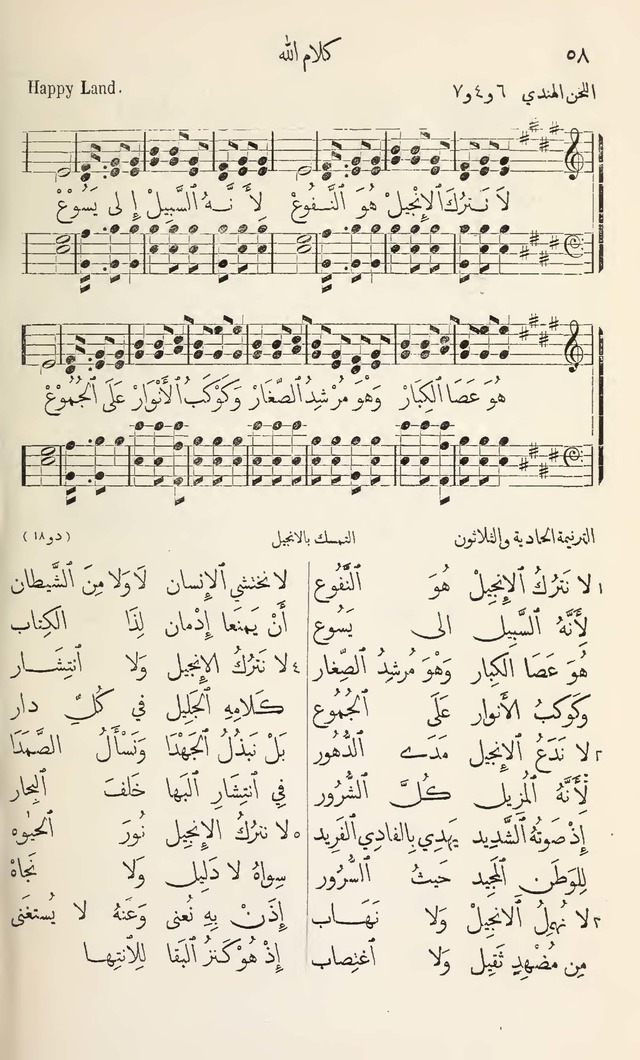 ٥٨
كلام الله
اللحن الهندي ٦ و٤ و٧
Happy Land.
لَا نَتْرُكُ ٱلْإِنْجِيلْ هُوَ ٱلنَّفُوعْ لِأَنَّهُ ٱلسَّبِيلْ إِلَى يَسُوعْ
هُوَ عَصَا ٱلْكِبَارْ وَهْوَ مُرْشِدُ ٱلصِّغَارْ وَكَوْكَبُ ٱلْأَنْوَارْ عَلَى ٱلْجُمُوعْ
الترنيمة الحادية والثلاثون
التمسك بالانجيل
(دو ١٨)
١ لا نَتْرُكُ ٱلإِنجِيلْ هُوَ ٱلنَّفُوع
لِأَنَّهُ ٱلسَّبِيل الى يَسُوع
هُوَ عَصَا ٱلكِبار وَهْوَ مُرشِدُ ٱلصِّغار
وَكَوكبُ ٱلأنوار عَلَى ٱلجُمُوع
٢ لا نَدَعُ ٱلإِنجيل مَدَى ٱلدُّهُور
لِأَنَّهُ ٱلمُزِيل كُلَّ ٱلشُّرُور
إِذْ صَوتُهُ ٱلشَّدِيد يَهدِي بِالفادِي ٱلفَرِيد
لِلوَطَنِ ٱلمَجِيد حَيثُ ٱلسُّرُور
٢ لا نُهمِلُ ٱلانجِيلْ وَلا نَهَاب
مِن مُضْهِدٍ ثَقِيل وَلا ٱغتِصاب
لا نختشي ٱلإِنسان لَا وَلا مِنَ ٱلشَّيطان
أَنْ يَمنَعا إِدْمان لِذَا ٱلكِتاب
٤ لا نَتْرُكُ الإِنجِيل وَلا ٱنتِشَار
كَلامِهِ ٱلجَلِيل في كُلِّ دار
بَلْ نَبذُلُ ٱلجَهْدَا وَنَسْأَلُ الصَّمَدَا
فِي ٱنتِشارِ ٱلبَها خَلفَ ٱلبِحار
٥ لا نترُكُ الإِنجِيل نُورَ ٱلحَيٰوه
سِواهُ لا دَلِيل وَلا نَجَاهْ
إِذَنْ بِهِ نُعنى وَعَنهُ لا يُستغنَى
إِذْ هُوْ كَنزُ ٱلبَقا لِلاَنتِها